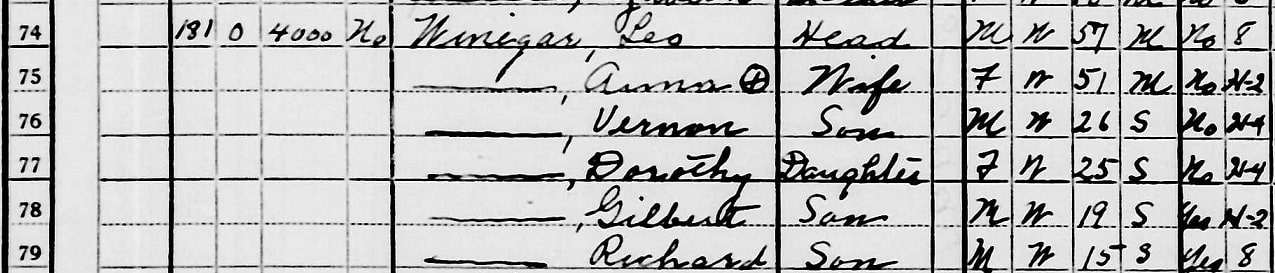 74 181 0 4000 No Winegar, Leo Head M W 57 M No 8
75 ———, Anna ⊕ Wife F W 51 M No H-2
76 ———, Vernon Son M W 26 S No H-4
77 ———, Dorothy Daughter F W 25 S No H-4
78 ———, Gilbert Son M W 19 S Yes H-2
79 ——— Richard Son M W 15 S Yes 8